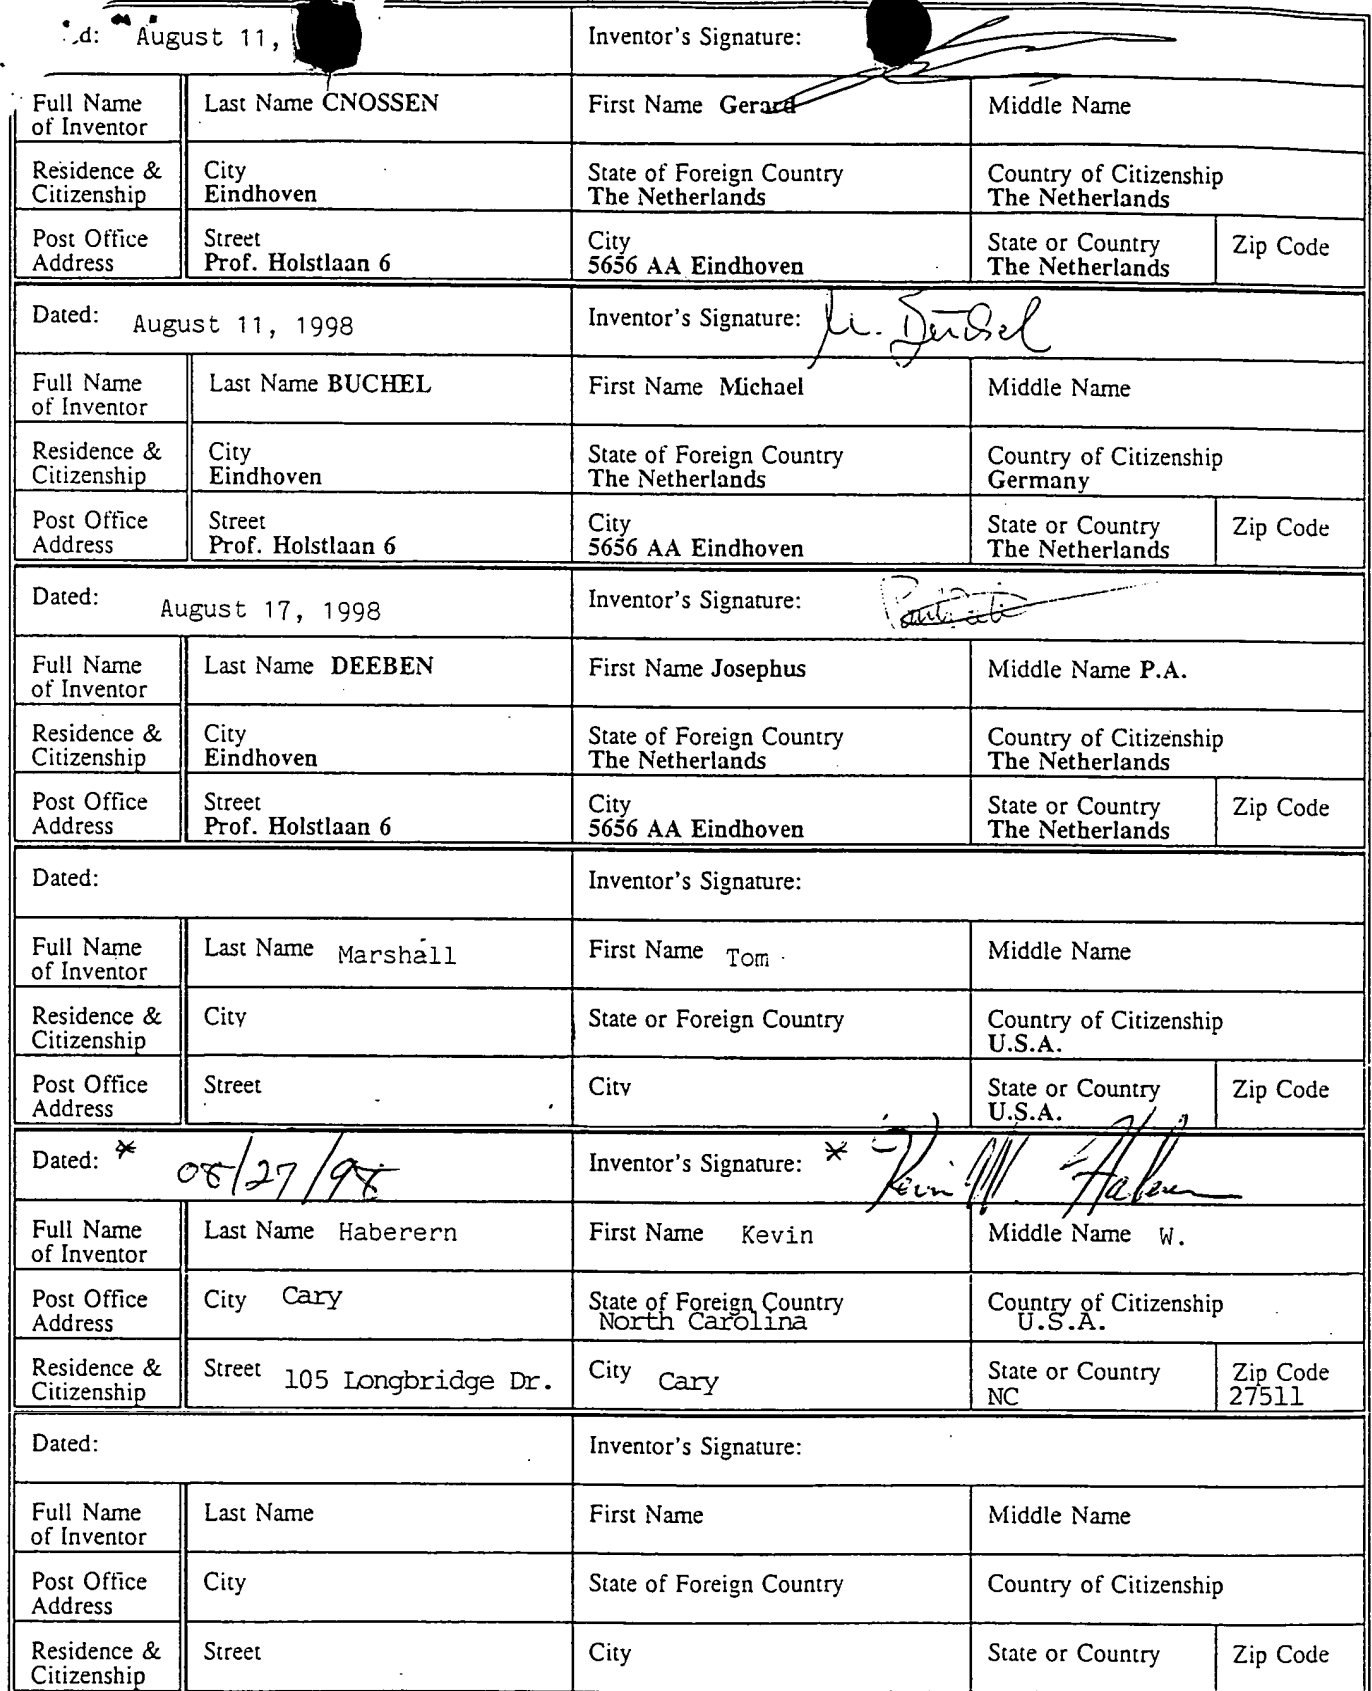 d: August 11, Inventor's Signature:
Full Name of Inventor Last Name CNOSSEN First Name Gerard Middle Name
Residence & Citizenship City Eindhoven State of Foreign Country The Netherlands Country of Citizenship The Netherlands
Post Office Address Street Prof. Holstlaan 6 City 5656 AA Eindhoven State or Country The Netherlands Zip Code
Dated: August 11, 1998 Inventor's Signature: M. Büchel
Full Name of Inventor Last Name BUCHEL First Name Michael Middle Name
Residence & Citizenship City Eindhoven State of Foreign Country The Netherlands Country of Citizenship Germany
Post Office Address Street Prof. Holstlaan 6 City 5656 AA Eindhoven State or Country The Netherlands Zip Code
Dated: August 17, 1998 Inventor's Signature:
Full Name of Inventor Last Name DEEBEN First Name Josephus Middle Name P.A.
Residence & Citizenship City Eindhoven State of Foreign Country The Netherlands Country of Citizenship The Netherlands
Post Office Address Street Prof. Holstlaan 6 City 5656 AA Eindhoven State or Country The Netherlands Zip Code
Dated: Inventor's Signature:
Full Name of Inventor Last Name Marshall First Name Tom Middle Name
Residence & Citizenship City State or Foreign Country Country of Citizenship U.S.A.
Post Office Address Street City State or Country U.S.A. Zip Code
Dated: * 08/27/98 Inventor's Signature: * Kevin W. Haberern
Full Name of Inventor Last Name Haberern First Name Kevin Middle Name W.
Post Office Address City Cary State of Foreign Country North Carolina Country of Citizenship U.S.A.
Residence & Citizenship Street 105 Longbridge Dr. City Cary State or Country NC Zip Code 27511
Dated: Inventor's Signature:
Full Name of Inventor Last Name First Name Middle Name
Post Office Address City State of Foreign Country Country of Citizenship
Residence & Citizenship Street City State or Country Zip Code